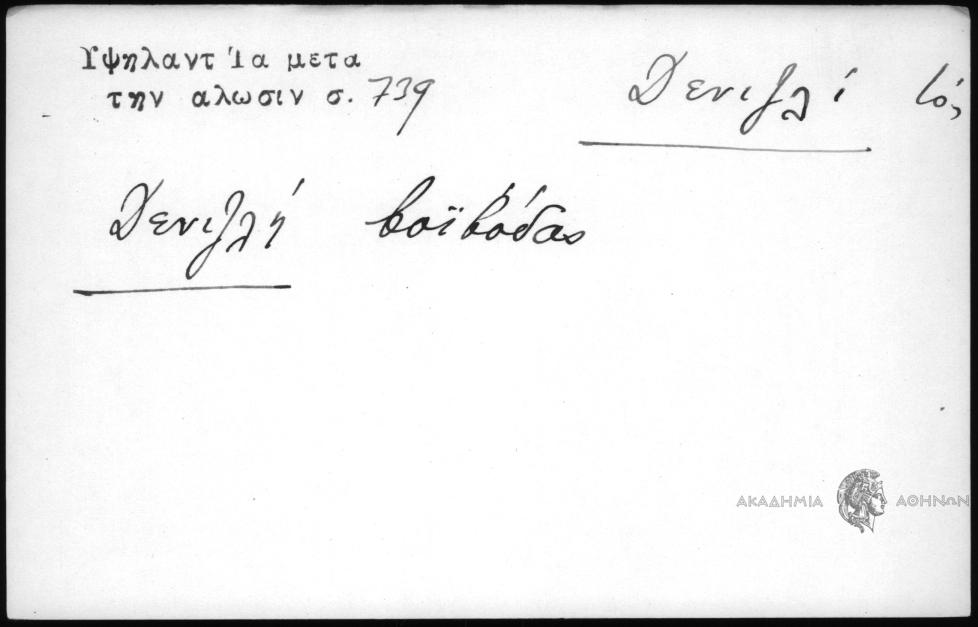 Υψηλαντ Ἰα μετα
την αλωσιν σ. 739
Δενιζλί
Δενιζλή βοϊβόδας
ΑΚΑΔΗΜΙΑ ΑΘΗΝΩΝ